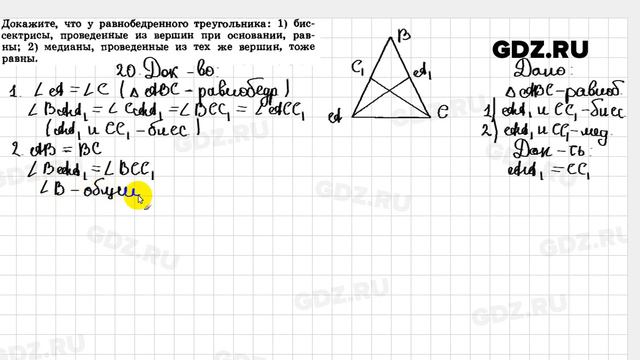 Докажите, что у равнобедренного треугольника: 1) бис-
сектрисы, проведенные из вершин при основании, рав-
ны; 2) медианы, проведенные из тех же вершин, тоже
равны.
GDZ.RU
20. Док-во:
1. ∠A = ∠C (△ABC - равнобедр)
∠BAA₁ = ∠CAA₁ = ∠BCC₁ = ∠ACC₁
(AA₁ и CC₁ - бисс)
2. AB = BC
∠BAA₁ = ∠BCC₁
∠B - общий
B
C₁
A₁
A
C
Дано:
△ABC - равноб.
1) AA₁ и CC₁ - бисс.
2) AA₁ и CC₁ - мед.
Док-ть:
AA₁ = CC₁
GDZ.RU
GDZ.RU
GDZ.RU
GDZ.RU